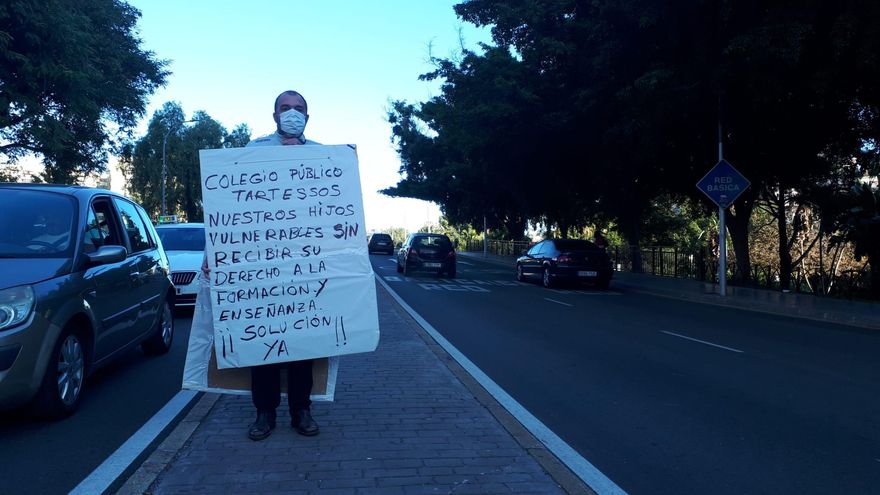 COLEGIO PÚBLICO
TARTESSOS
NUESTROS HIJOS
VULNERABLES SIN
RECIBIR SU
DERECHO A LA
FORMACIÓN Y
ENSEÑANZA.
¡¡ SOLUCIÓN !!
YA
RED
BASICA